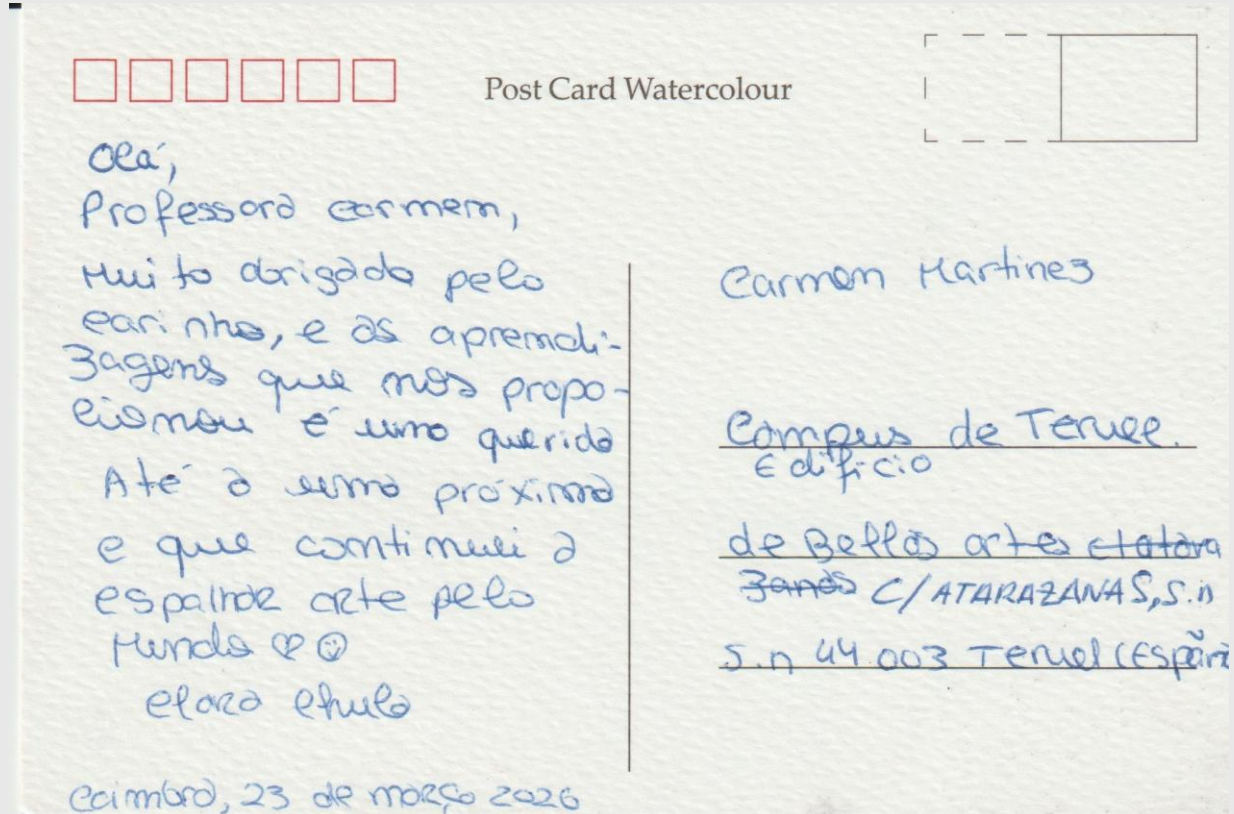 Post Card Watercolour
Olá,
Professora Carmem,
Muito obrigada pelo
carinho, e as aprendi-
zagens que nos propo-
cionou é uma querida
Até a uma próxima
e que continui a
espalhar arte pelo
Mundo
Clara Chulo
Coimbra, 23 de março 2026
Carmen Martinez
Campus de Teruel.
Edificio
de Bellas artes
C/ATARAZANAS, S.n
S.n 44.003 Teruel (España